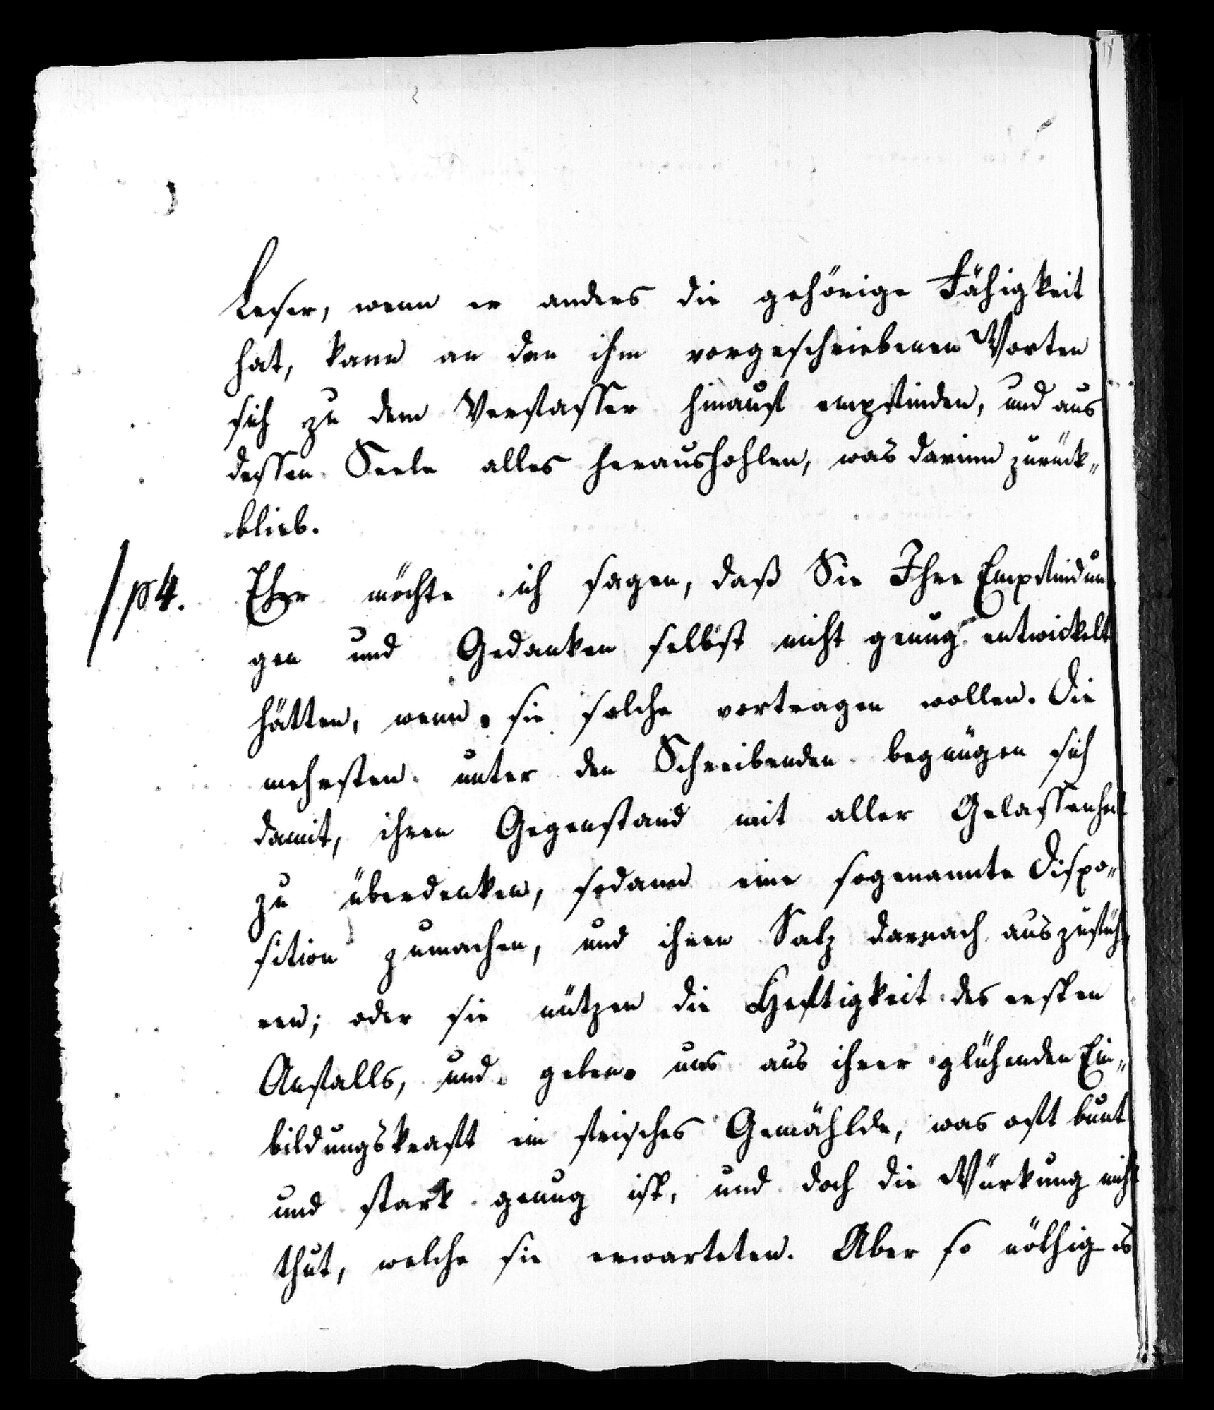 Leser, wenn er anders die gehörige Fähigkeit
hat, kann an den ihm vorgeschriebenen Worten
sich zu dem Verfasser hinauf empfinden, und aus
dessen Seele alles heraushohlen, was darinn zurück„
blieb.
/p 4. Eher möchte ich sagen, daß Sie Ihre Empfindun„
gen und Gedanken selbst nicht genug entwickelt
hätten, wenn sie solche vortragen wollen. Die
mehrsten unter den Schreibenden begnügen sich
damit, ihren Gegenstand mit aller Gelassenheit
zu überdenken, sodann eine sogenannte Dispo„
sition zumachen, und ihren Satz darnach auszufüh„
ren; oder sie nützen die Heftigkeit des ersten
Anfalls, und geben uns aus ihrer glühenden Ein„
bildungskraft ein frisches Gemählde, was oft bunt
und stark genug ist, und doch die Würkung nicht
thut, welche sie erwarteten. Aber so nöthig es